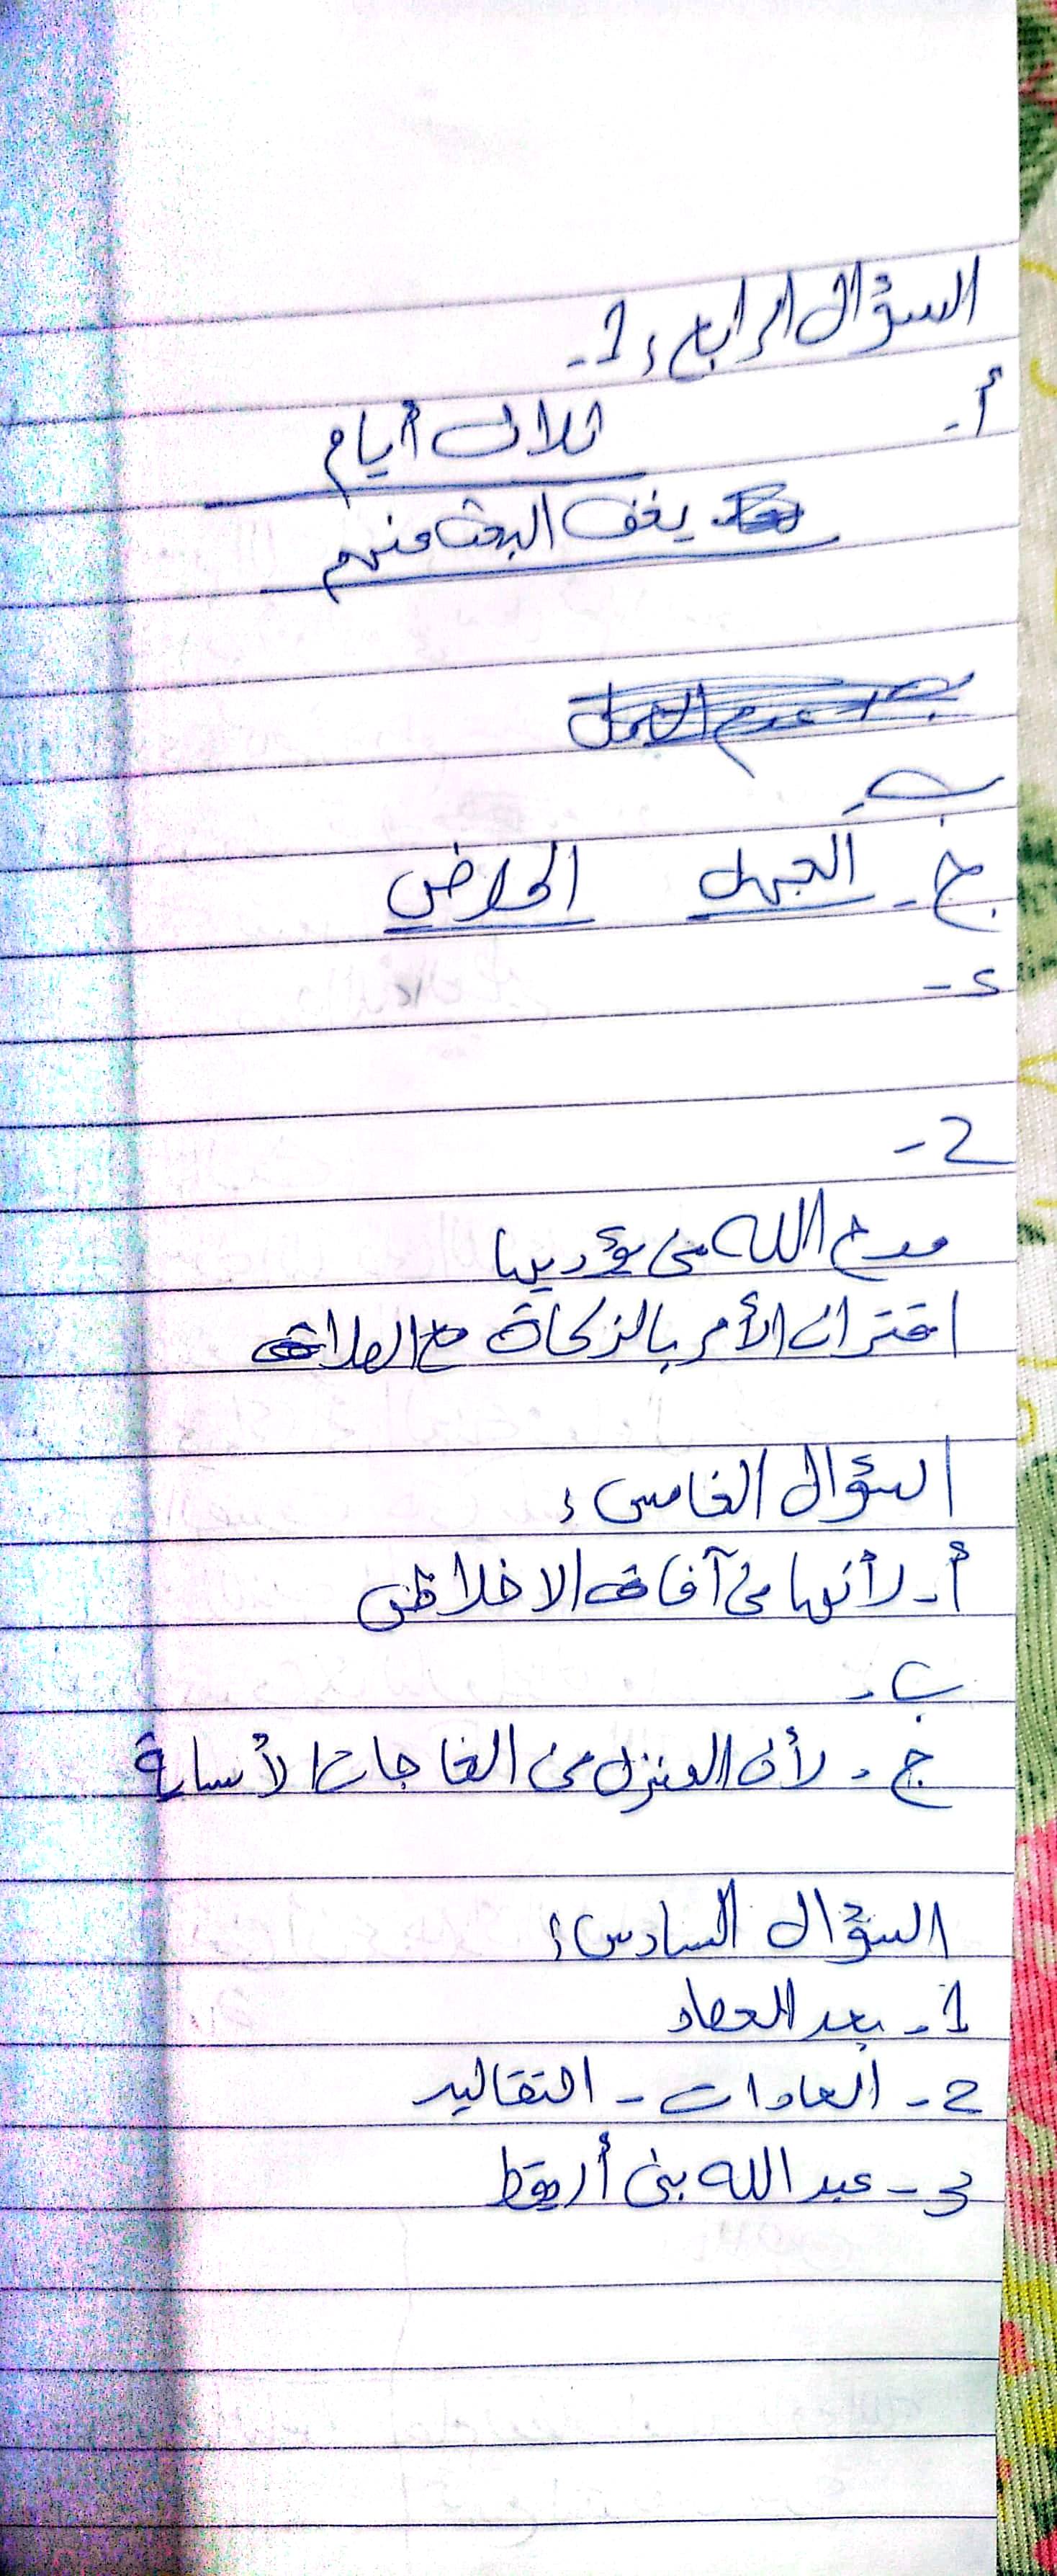 السؤال الرابع : 1-
أ-
ثلاث أيام
يخف البحث عنهم
ب-
ج- الجهل المرض
د-
2-
مدح الله من يؤديها
اقتران الأمر بالزكاة مع الصلاة
السؤال الخامس :
أ- لأنها من آفات الاخلاق
ب-
ج- لأن المنزل من الحاجات الأساسية
السؤال السادس :
1- بعد الحصاد
2- العادات - التقاليد
3- عبد الله بن أريقط